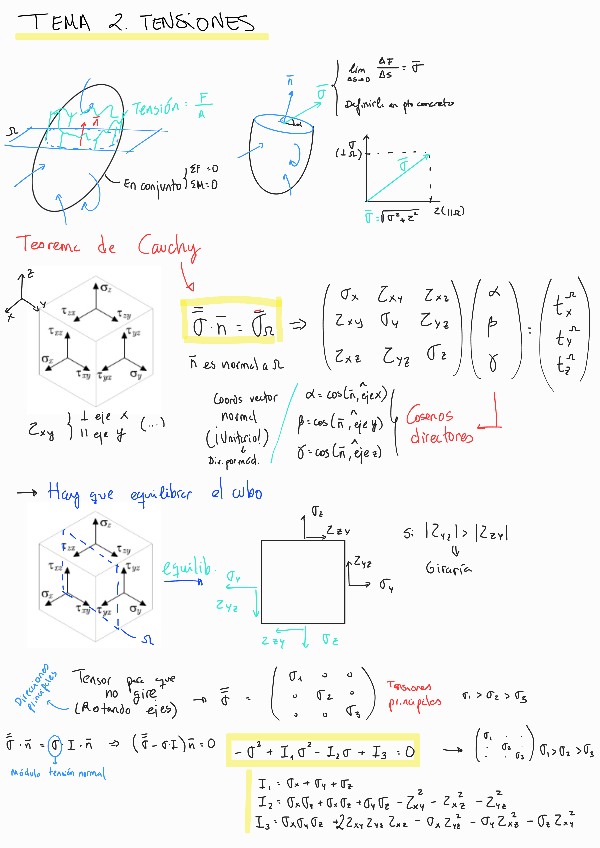 TEMA 2. TENSIONES
Tensión = F/A
n̄
Ω
En conjunto { ΣF = 0
ΣM = 0
n̄
σ̄
lim ΔS→0 ΔF/ΔS = σ̄
Definirlo en pto concreto
σ
(⊥Ω)
σ̄
σ̄ = √(σ² + τ²)
τ(||Ω)
Teorema de Cauchy
z
x
y
σz
τzx
τzy
τxz
τyz
σx
τxy
τyx
σy
σ̿ · n̄ = σ̄Ω ⇒ ( σx τxy τxz ) ( α ) = ( txΩ )
( τxy σy τyz ) ( β ) ( tyΩ )
( τxz τyz σz ) ( γ ) ( tzΩ )
n̄ es normal a Ω
τxy } ⊥ eje x
|| eje y (...)
Coords vector
normal
(¡Unitario!)
Div. por mód.
α = cos(n̄, eje x)
β = cos(n̄, eje y)
γ = cos(n̄, eje z)
Cosenos
directores
→ Hay que equilibrar el cubo
σz
τzx
τzy
τxz
τyz
σx
τxy
τyx
σy
Ω
equilib.
σz
τzy
τyz
σy
σy
τyz
τzy
σz
Si |τyz| > |τzy|
Giraría
Direcciones
principales
Tensor para que
no gire
(Rotando ejes)
→ σ̿ = ( σ1 0 0 )
( 0 σ2 0 )
( 0 0 σ3 )
Tensiones
principales
σ1 > σ2 > σ3
σ̿ · n̄ = σ I · n̄ ⇒ (σ̿ - σ·I) n̄ = 0
módulo tensión normal
- σ³ + I1 σ² - I2 σ + I3 = 0
→ ( σ1 · · )
( · σ2 · )
( · · σ3 ) σ1 > σ2 > σ3
I1 = σx + σy + σz
I2 = σxσy + σxσz + σyσz - τxy² - τxz² - τyz²
I3 = σxσyσz + 2τxyτyzτxz - σxτyz² - σyτxz² - σzτxy²